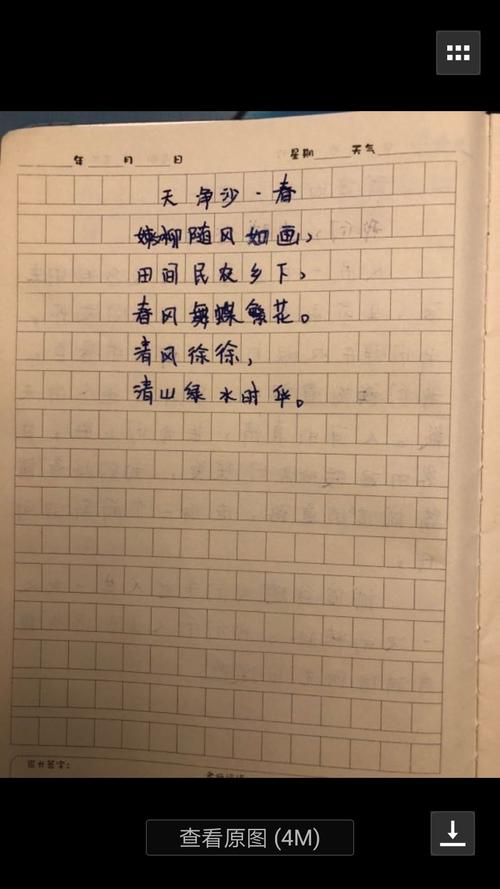 年 月 日 星期 天气
天净沙·春
嫣柳随风如画,
田间民农乡下,
春风舞蝶繁花。
清风徐徐,
清山绿水时华。
查看原图 (4M)